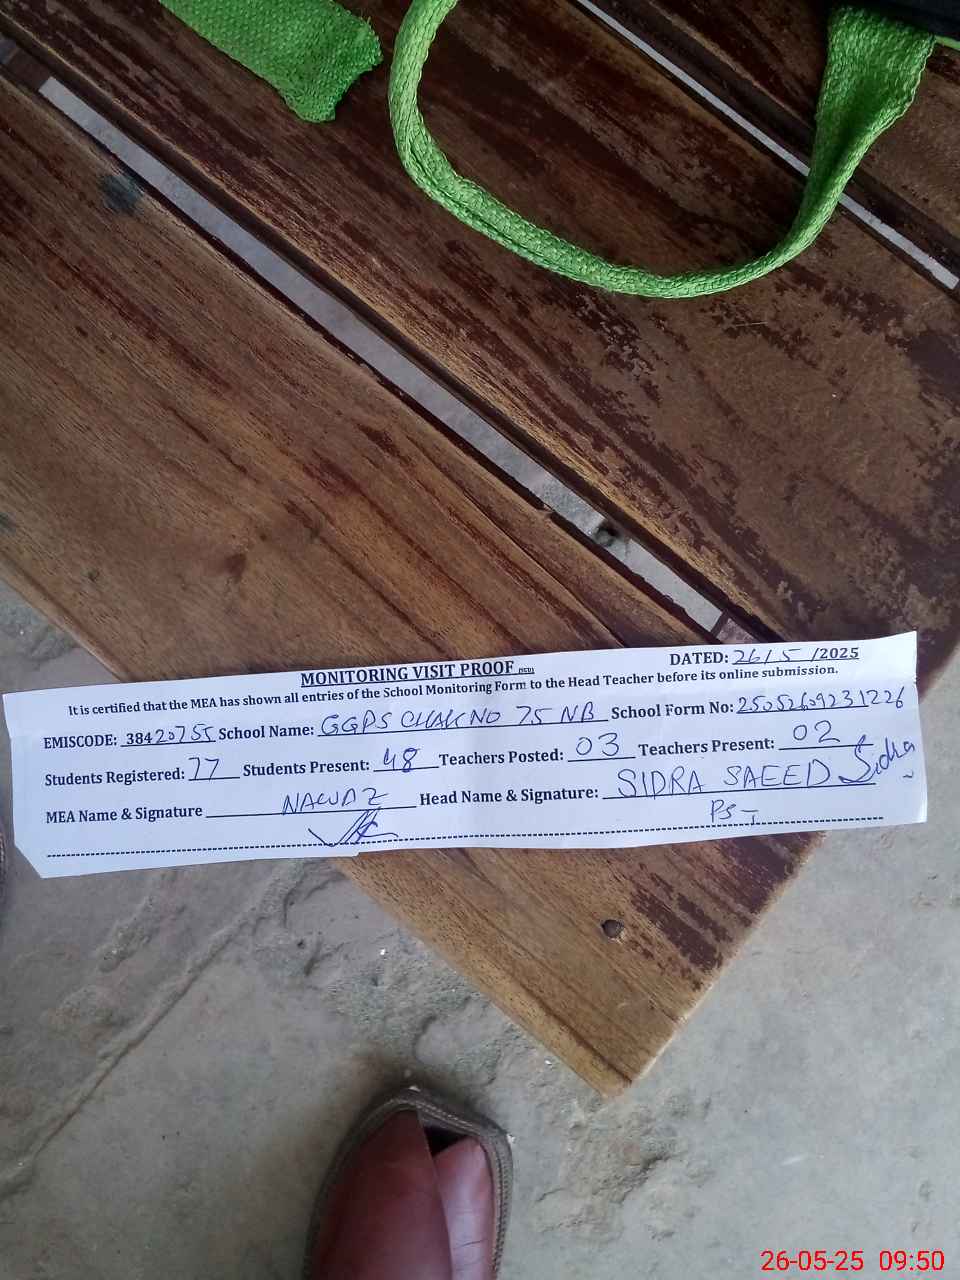 MONITORING VISIT PROOF
DATED: 26/5/2025
It is certified that the MEA has shown all entries of the School Monitoring Form to the Head Teacher before its online submission.
EMISCODE: 38420755 School Name: GGPS CHAK NO 75 NB School Form No: 25052609231226
Students Registered: 77 Students Present: 48 Teachers Posted: 03 Teachers Present: 02
MEA Name & Signature NAWAZ Head Name & Signature: SIDRA SAEED Sidra
PST
26-05-25 09:50